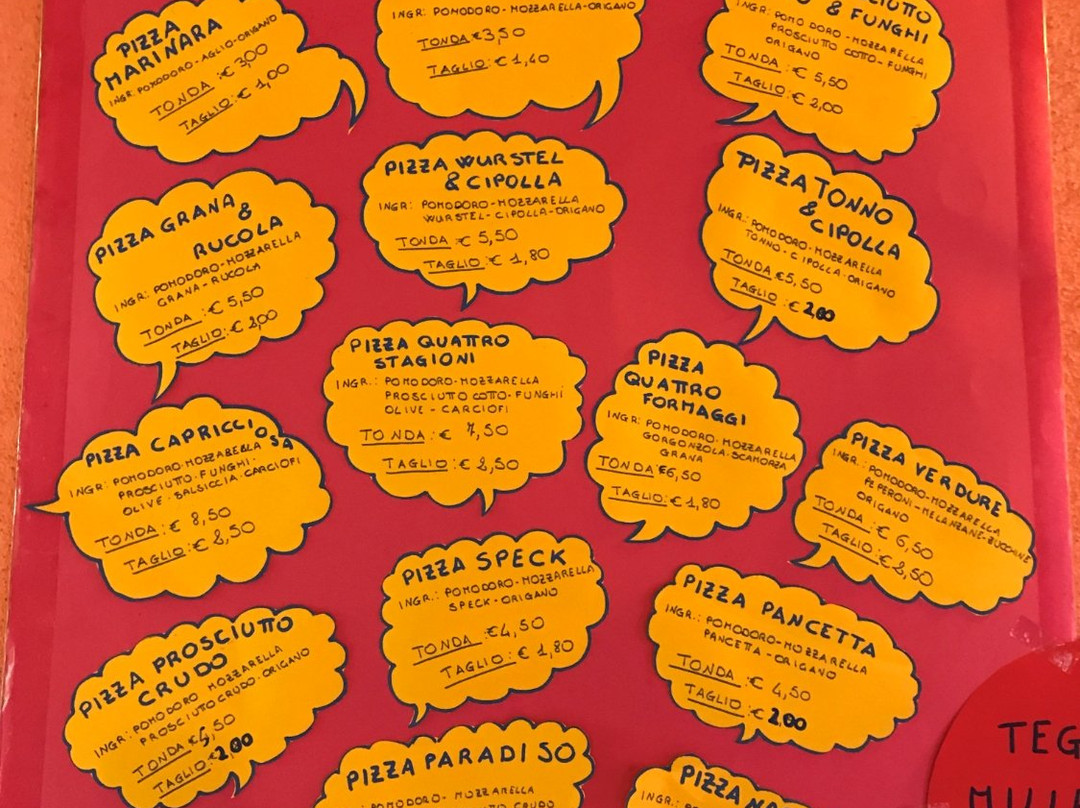 PIZZA
MARINARA
INGR: POMODORO-AGLIO-ORIGANO
TONDA: € 3,00
TAGLIO: € 1,00
INGR: POMODORO-MOZZARELLA-ORIGANO
TONDA €3,50
TAGLIO: € 1,40
& FUNGHI
INGR: POMODORO-MOZZARELLA
PROSCIUTTO COTTO-FUNGHI
ORIGANO
TONDA: € 5,50
TAGLIO: € 2,00
PIZZA GRANA
&
RUCOLA
INGR: POMODORO-MOZZARELLA
GRANA-RUCOLA
TONDA: € 5,50
TAGLIO: € 2,00
PIZZA WURSTEL
& CIPOLLA
INGR: POMODORO-MOZZARELLA
WURSTEL-CIPOLLA-ORIGANO
TONDA: € 5,50
TAGLIO: € 1,80
PIZZA TONNO
&
CIPOLLA
INGR: POMODORO-MOZZARELLA
TONNO-CIPOLLA-ORIGANO
TONDA €5,50
TAGLIO: € 2,00
PIZZA QUATTRO
STAGIONI
INGR.: POMODORO-MOZZARELLA
PROSCIUTTO COTTO-FUNGHI
OLIVE-CARCIOFI
TONDA: € 7,50
TAGLIO: € 2,50
PIZZA
QUATTRO
FORMAGGI
INGR: POMODORO-MOZZARELLA
GORGONZOLA-SCAMORZA
GRANA
TONDA €6,50
TAGLIO: € 1,80
PIZZA CAPRICCIOSA
INGR: POMODORO-MOZZARELLA
PROSCIUTTO-FUNGHI-
OLIVE-SALSICCIA-CARCIOFI
TONDA: € 8,50
TAGLIO: € 2,50
PIZZA VERDURE
INGR.: POMODORO-MOZZARELLA
PEPERONI-MELANZANE-ZUCCHINE
ORIGANO
TONDA: € 6,50
TAGLIO: € 2,50
PIZZA SPECK
INGR.: POMODORO-MOZZARELLA
SPECK-ORIGANO
TONDA: €4,50
TAGLIO: € 1,80
PIZZA PANCETTA
INGR.: POMODORO-MOZZARELLA
PANCETTA-ORIGANO
TONDA: € 4,50
TAGLIO: € 2,00
PIZZA PROSCIUTTO
CRUDO
INGR: POMODORO MOZZARELLA
PROSCIUTTO CRUDO-ORIGANO
TONDA
TAGLIO: €2,00
PIZZA PARADISO
INGR.: POMODORO-MOZZARELLA
CRUDO
PIZZA
TEG